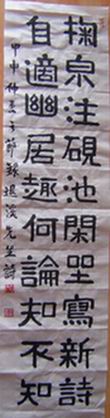 掬泉注硯池閑坐寫新詩
自適幽居趣何論知不知
甲申仲春之節錄退溪先生詩